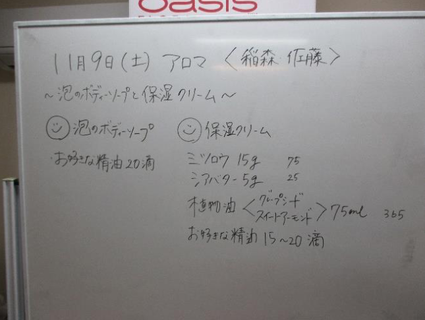 oasis
11月9日(土) アロマ <稲森 佐藤>
~泡のボディーソープと保湿クリーム~
泡のボディーソープ
・お好きな精油20滴
保湿クリーム
ミツロウ 15g 75
シアバター 5g 25
植物油 <グレープシード スイートアーモンド> 75ml 365
お好きな精油 15~20滴